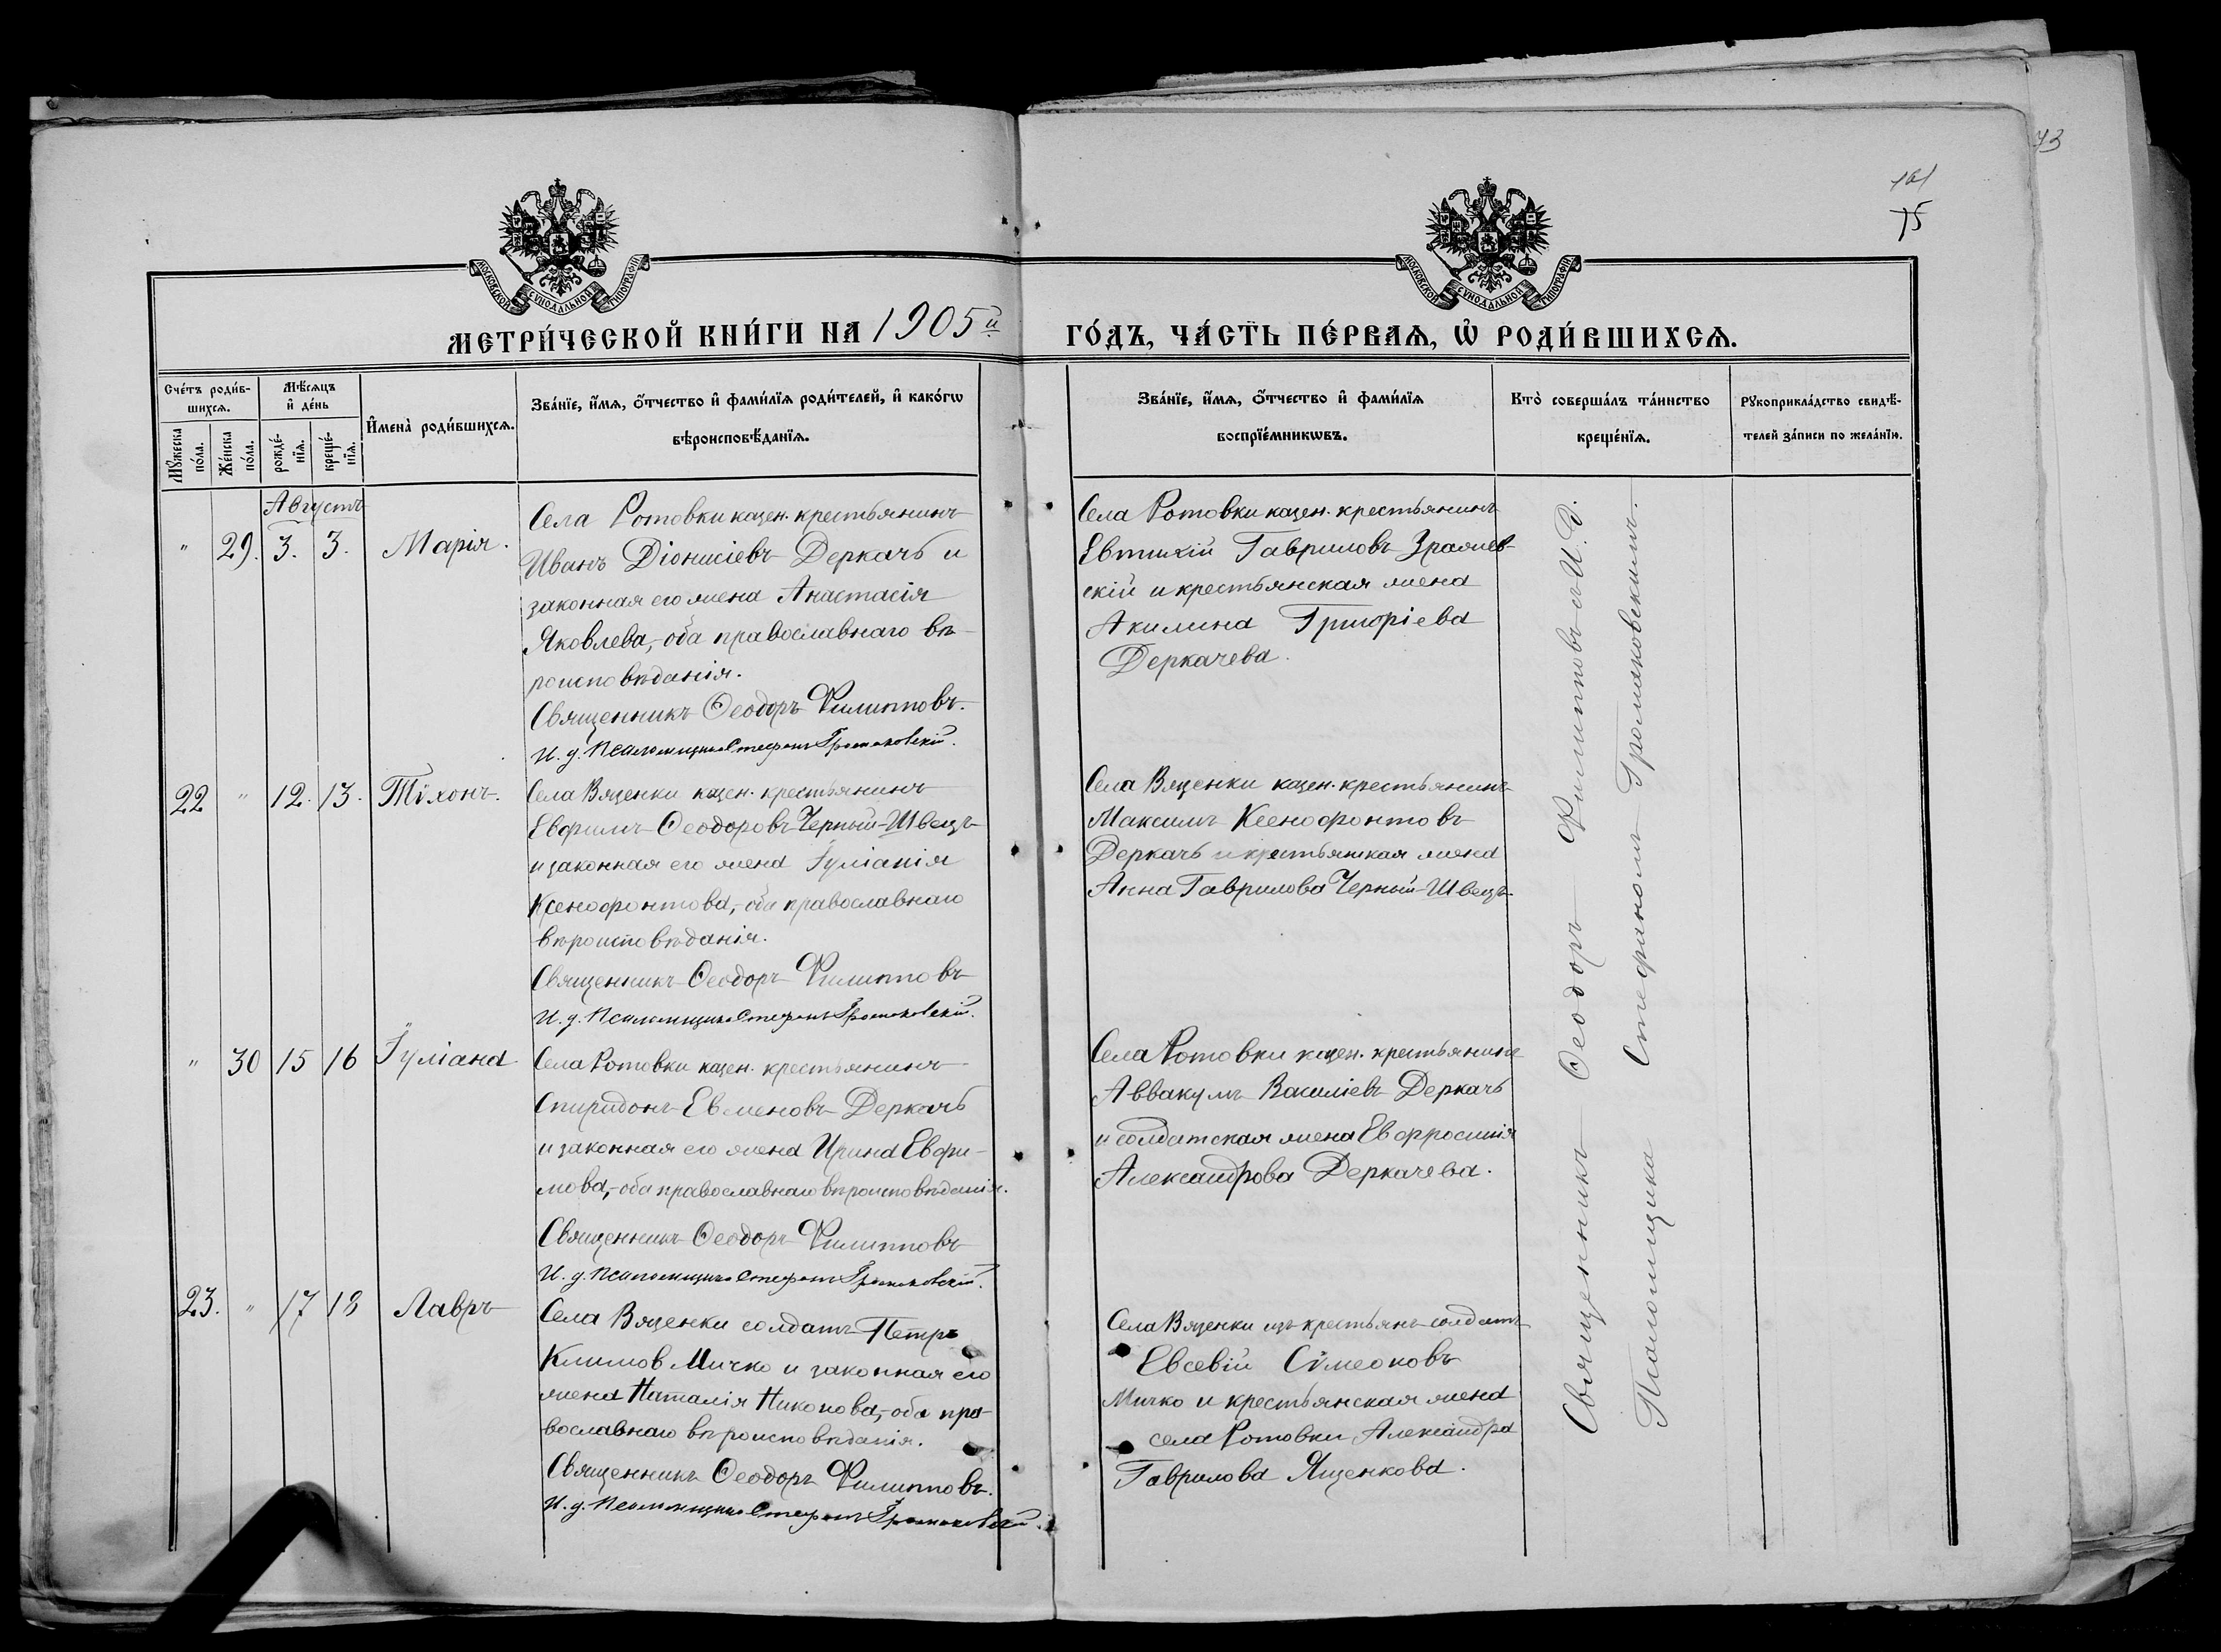 73
141
75
МОСКОВСКОЙ СУНОДАЛЬНОЙ ТИПОГРАФІИ
МОСКОВСКОЙ СУНОДАЛЬНОЙ ТИПОГРАФІИ
МЕТРИ́ЧЕСКОЙ КНИ́ГИ НА 1905й
ГО́ДЪ, ЧА́СТЬ ПЕ́РВАѦ, Ѡ҆ РОДИ́ВШИХСѦ.
Сче́тъ роди́в-
шихсѧ.
Мѣ́сѧцъ
и҆ де́нь
Мꙋ́жеска по́ла.
Же́нска по́ла.
рожде́-
нїѧ.
креще́-
нїѧ.
И҆мена̀ роди́вшихсѧ.
Зва́нїе, и҆́мѧ, ѻ҆́тчество и҆ фами́лїѧ роди́телей, и҆ како́гѡ
вѣроисповѣ́данїѧ.
Зва́нїе, и҆́мѧ, ѻ҆́тчество и҆ фами́лїѧ
воспрїе́мникѡвъ.
Кто̀ соверша́лъ та́инство
креще́нїѧ.
Рꙋкоприкла́дство свидѣ́-
телей за́писи по жела́нїю.
Августъ
" 29. 3. 3. Марія.
Села Ротовки казен. крестьянинъ
Иванъ Діонисіевъ Деркачъ и
законная его жена Анастасія
Яковлева,-оба православнаго вѣ-
роисповѣданія.
Священникъ Ѳеодоръ Филипповъ.
И. д. Псаломщика Стефанъ Громаковскій.
Села Ротовки казен. крестьянинъ
Евтихій Гавриловъ
скій и крестьянская жена
Акилина Григоріева
Деркачева.
22 " 12. 13. Тѵхонъ.
Села Вященки казен. крестьянинъ
Евфимъ Ѳеодоровъ Черный-Швецъ
и законная его жена Іуліанія
Ксенофонтова,-оба православнаго
вѣроисповѣданія.
Священникъ Ѳеодоръ Филипповъ
И. д. Псаломщика Стефанъ Громаковскій.
Села Вященки казен. крестьянинъ
Максимъ Ксенофонтовъ
Деркачъ и крестьянская жена
Анна Гаврилова Черный-Швецъ.
" 30 15 16 Іуліана
Села Ротовки казен. крестьянинъ
Спиридонъ Евменовъ Деркачъ
и законная его жена Ирина Евфи-
мова,-оба православнаго вѣроисповѣданія.
Священникъ Ѳеодоръ Филипповъ
И. д. Псаломщика Стефанъ Громаковскій.
Села Ротовки казен. крестьянинъ
Аввакумъ Василіевъ Деркачъ
и солдатская жена Евфросинія
Александрова Деркачева.
23. " 17 18 Лавръ
Села Вященки солдатъ Петръ
Климов Мичко и законная его
жена Наталія Никонова,-оба пра-
вославнаго вѣроисповѣданія.
Священникъ Ѳеодоръ Филипповъ.
И. д. Псаломщика Стефанъ Громаковскій.
Села Вященки изъ крестьянъ солдатъ
Евсевій Сѵмеоновъ
Мичко и крестьянская жена
села Ротовки Александра
Гаврилова Ященкова.
Священникъ Ѳеодоръ Филипповъ и И. д.
Псаломщика Стефаномъ Громаковскимъ.